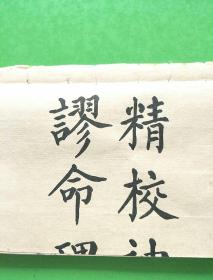 精校
謬命